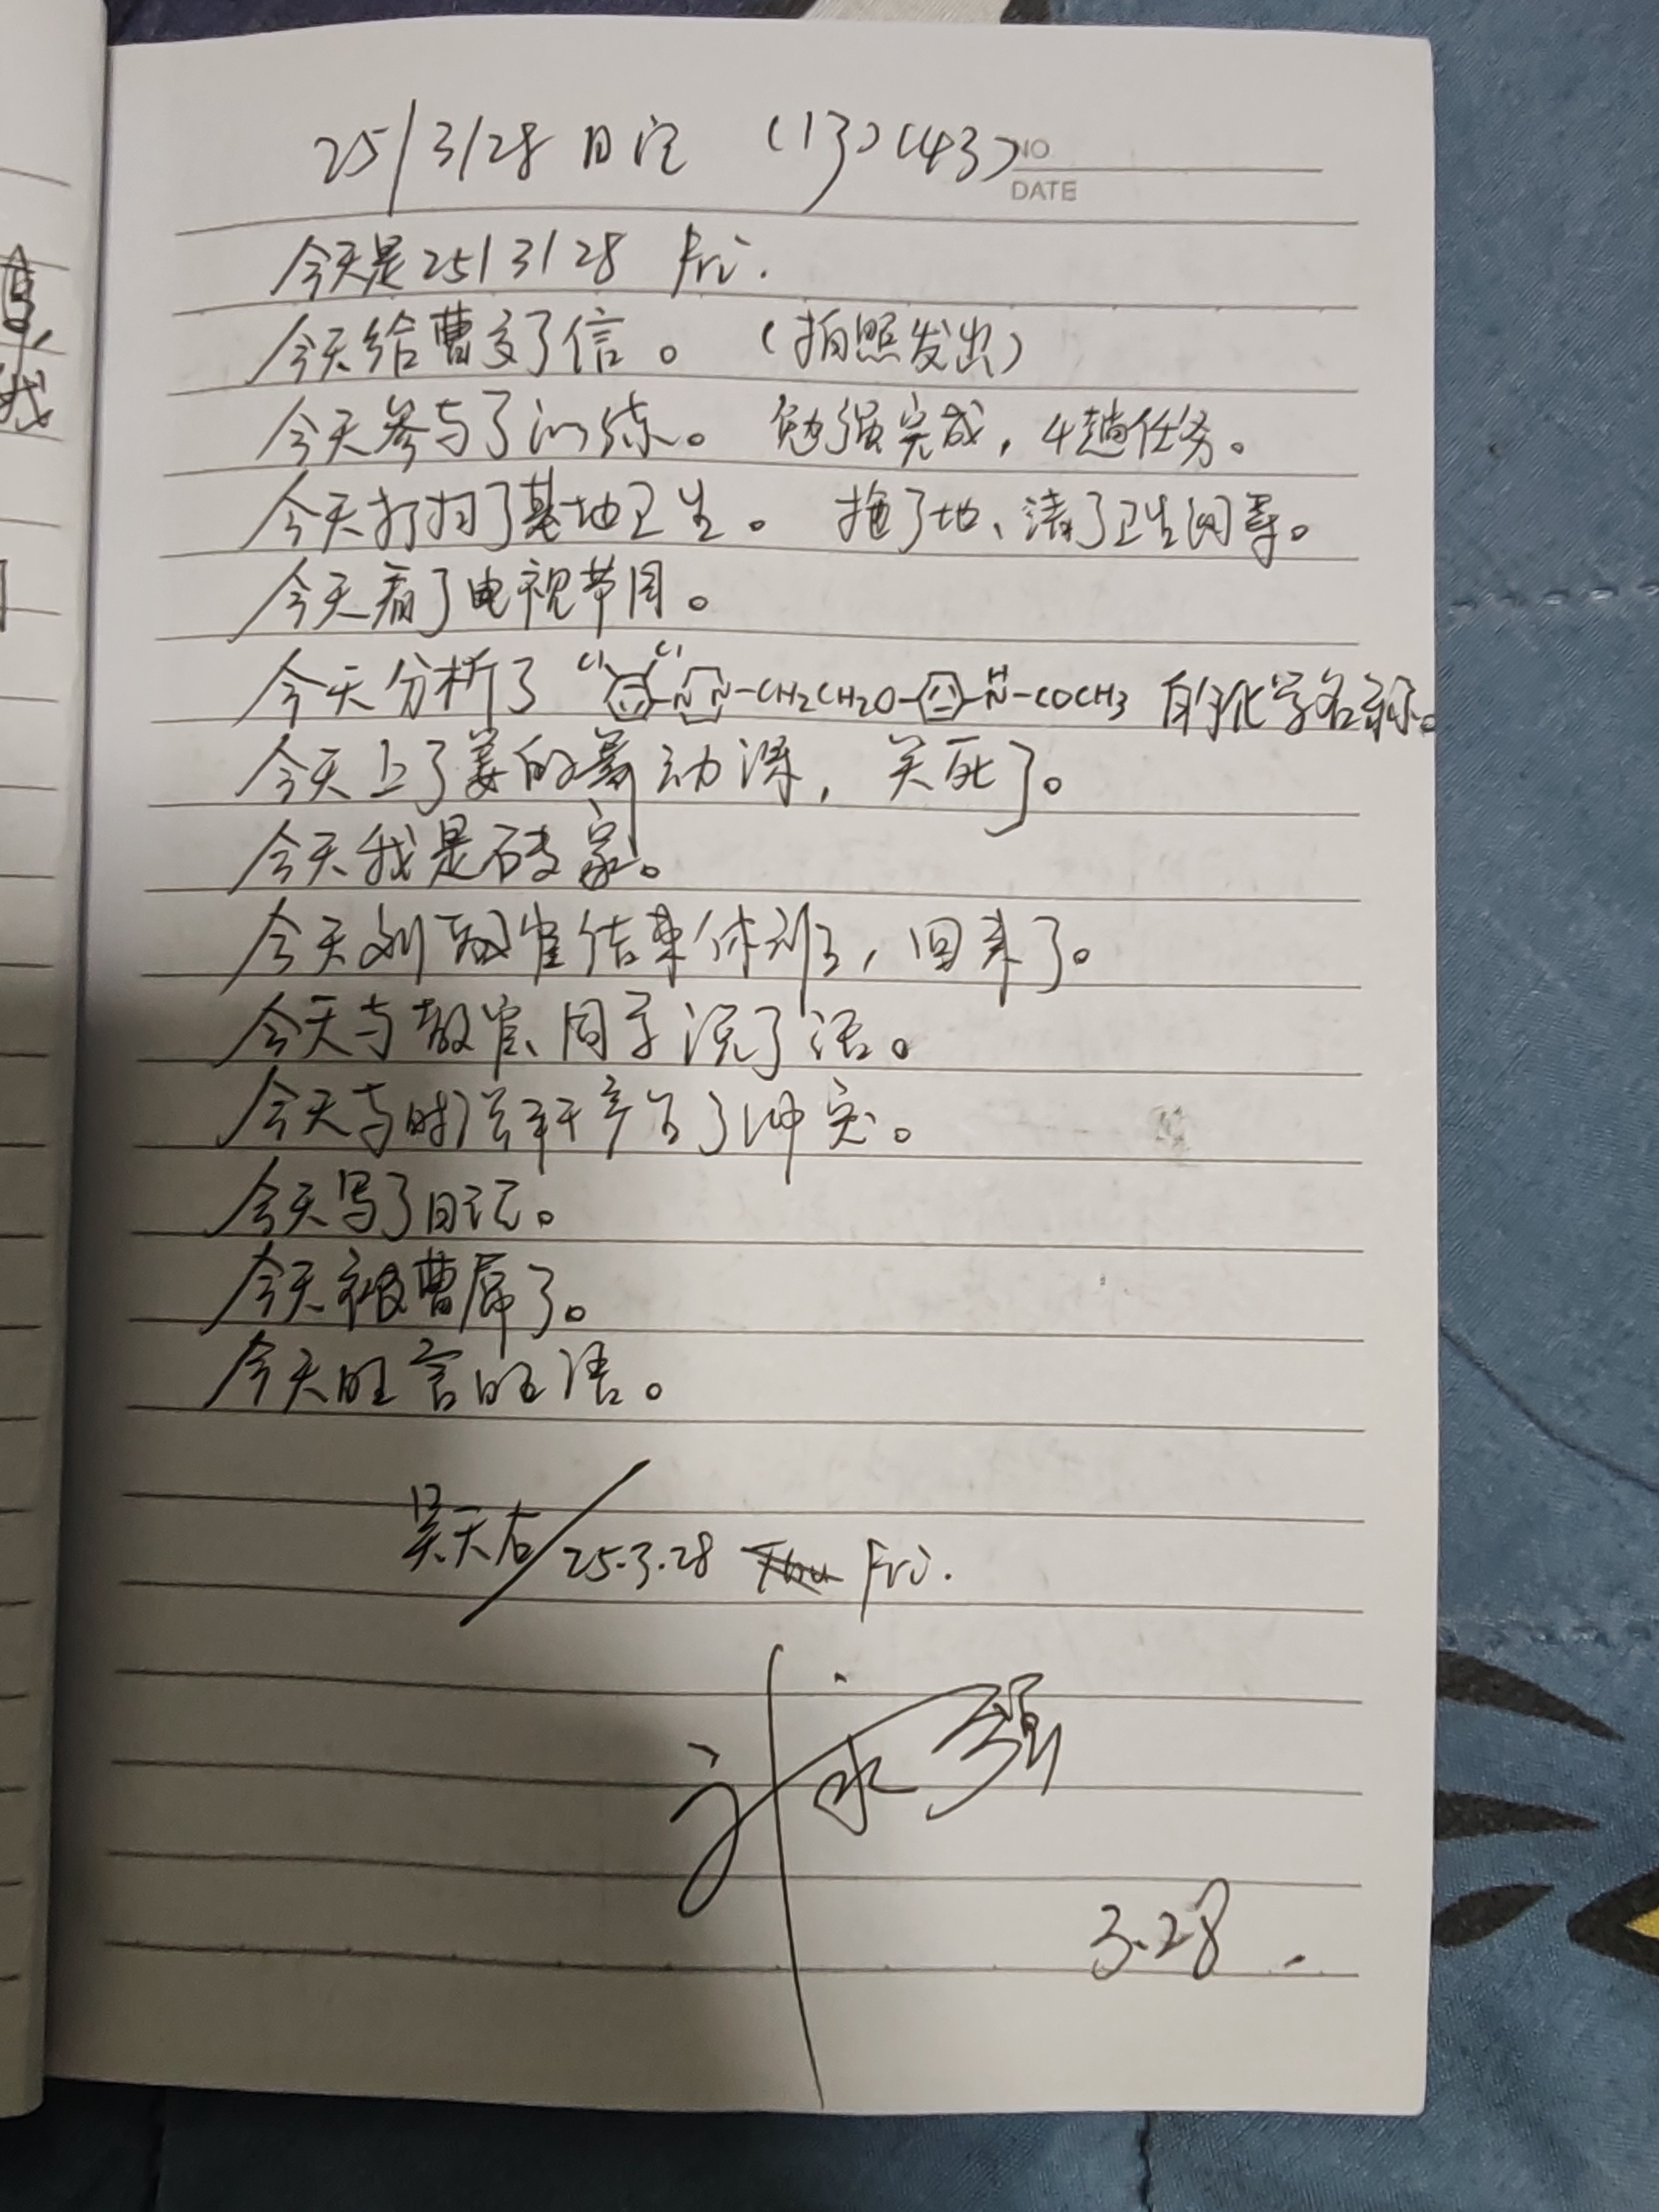 25/3/28 日记 (13)(43)
NO
DATE
今天是25/3/28 Fri.
今天给曹交了信。 (拍照发出)
今天参与了训练。 勉强完成，4趟任务。
今天打扫了基地卫生。 拖了地、清了卫生间等。
今天看了电视节目。
今天分析了 Cl Cl N N-CH2CH2O- H N-COCH3 的化学名称。
今天上了姜的劳动课，关死了。
今天我是砖家。
今天刘教官结束休班，回来了。
今天与教官、同学说了话。
今天与时 产生了冲突。
今天写了日记。
今天被曹屌了。
今天 言 语。
吴天右/25.3.28 Thu Fri.
刘永强
3.28
真
我